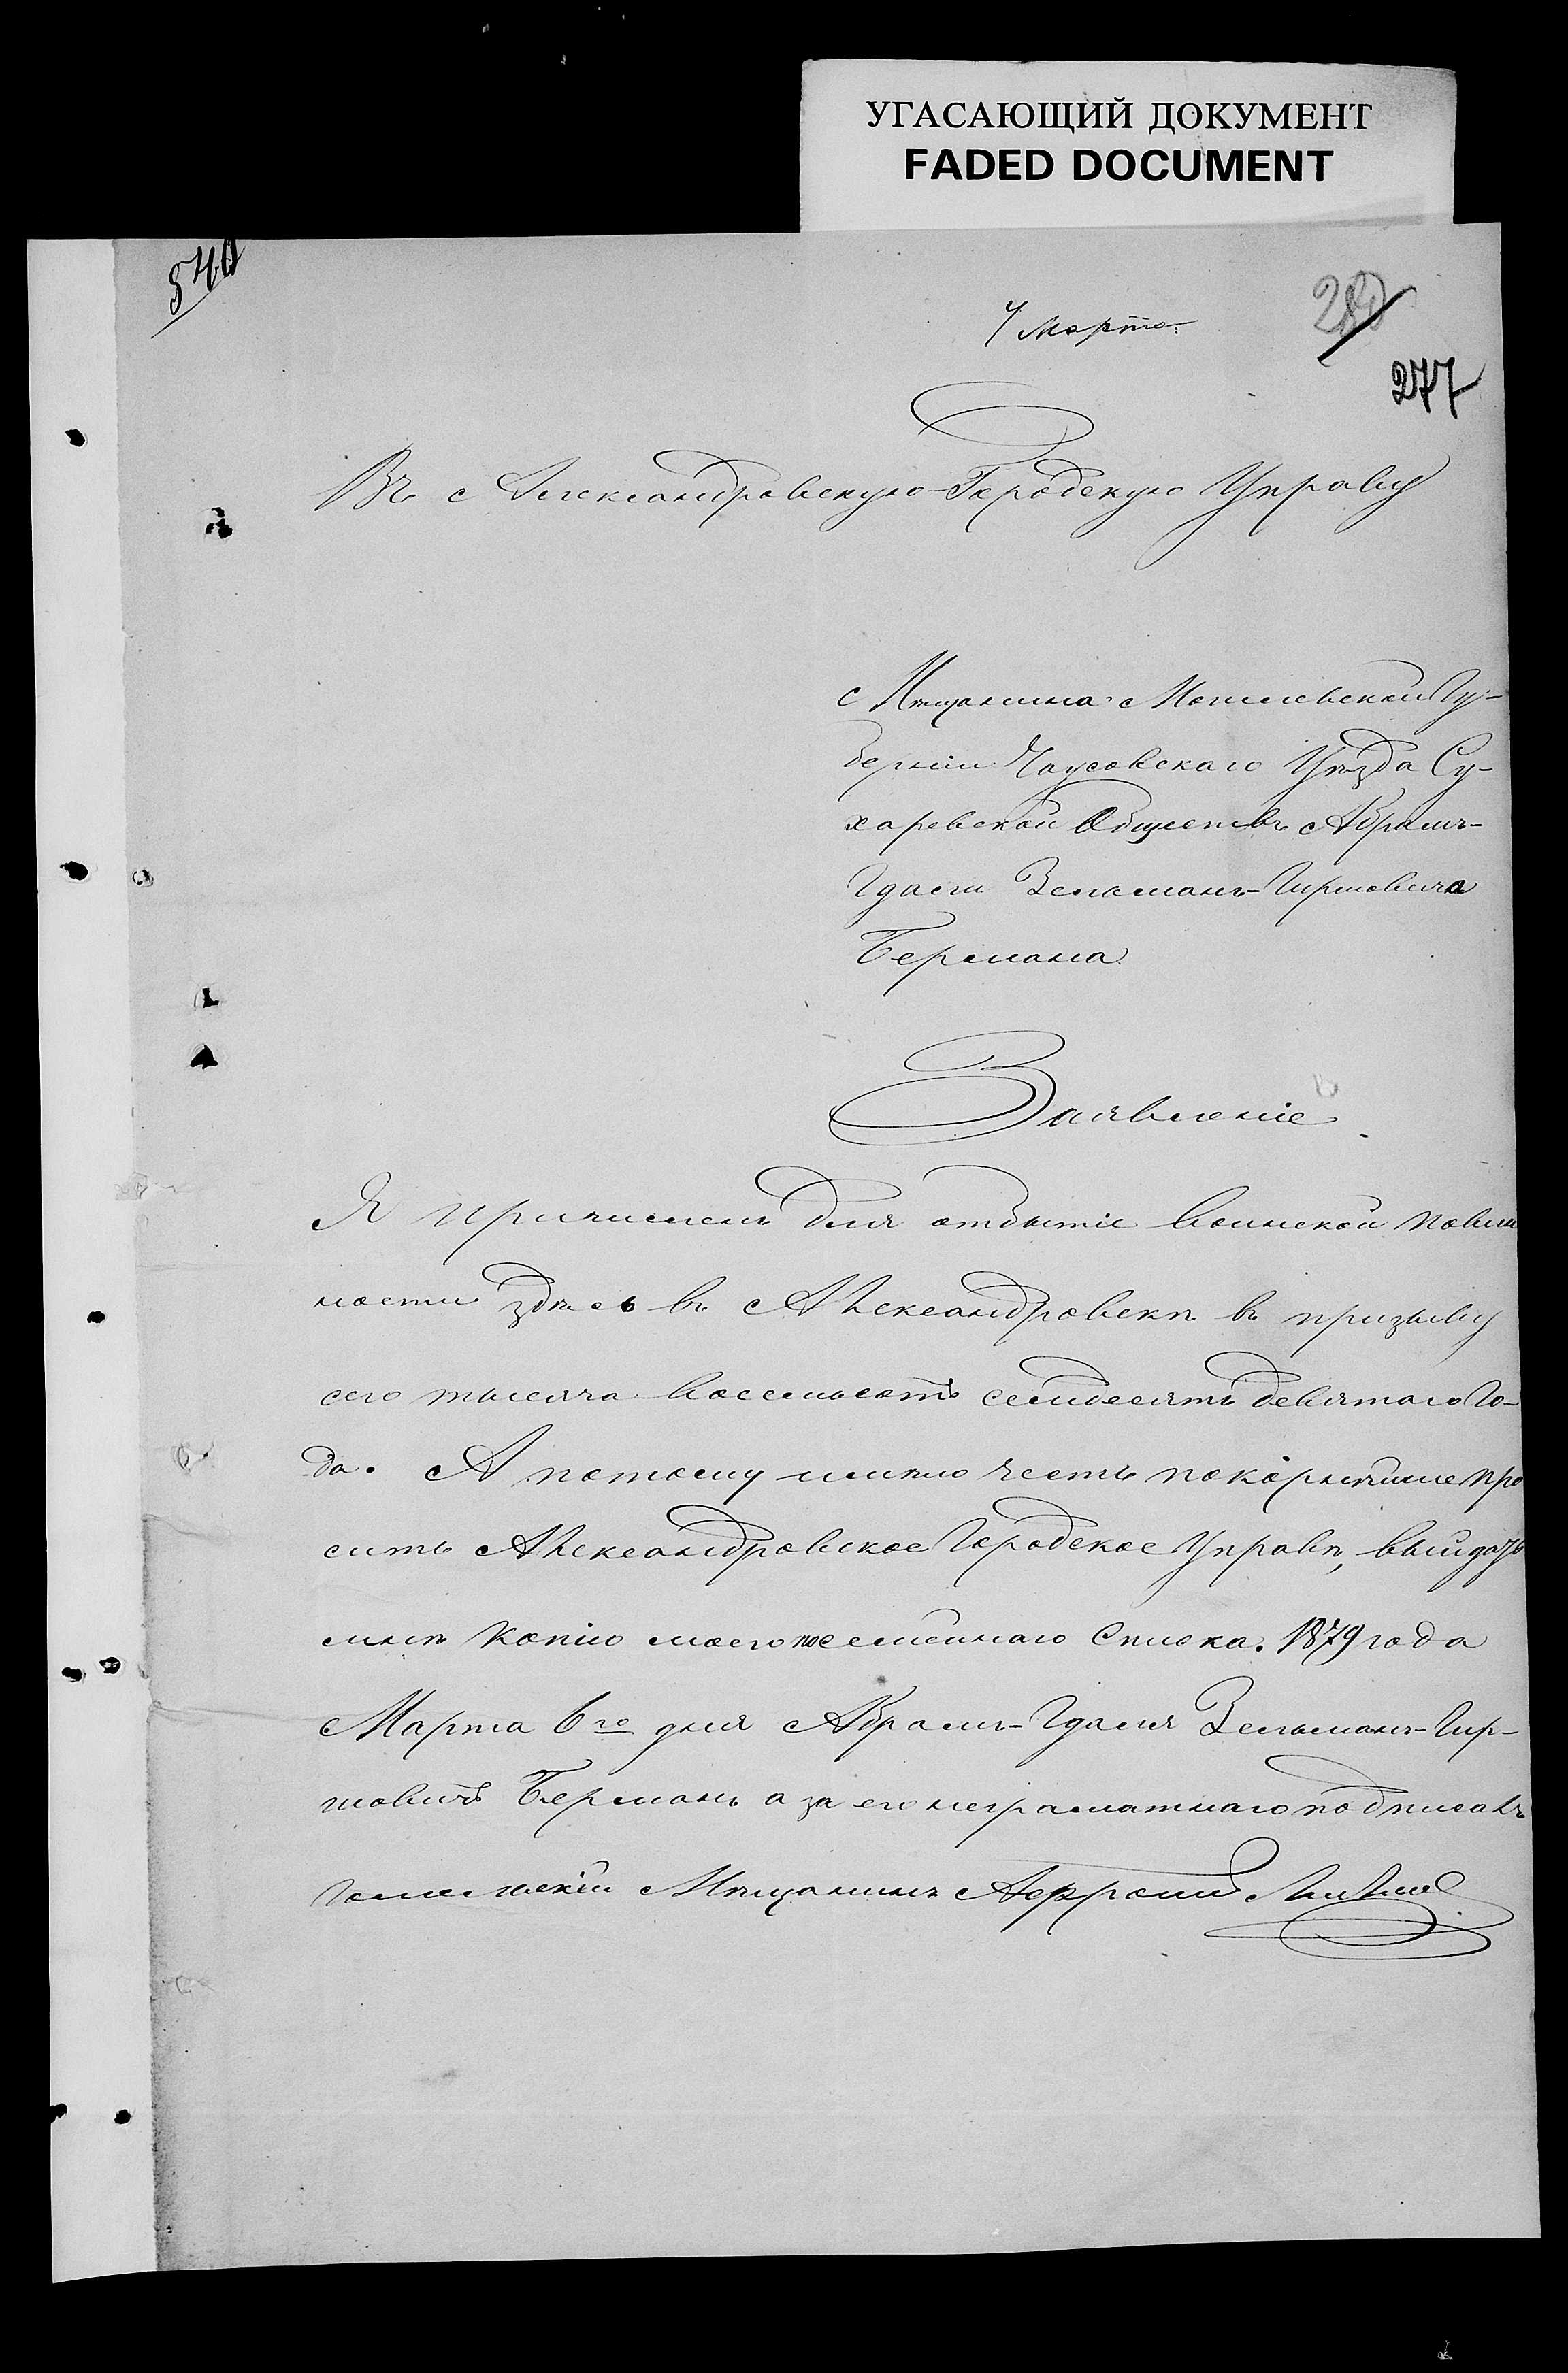 УГАСАЮЩИЙ ДОКУМЕНТ
FADED DOCUMENT
540
7 марта
280
277
Въ Александровскую Городскую Управу
Мѣщанина Могилевской Гу-
берніи Чаусовскаго Уѣзда Су-
харевской Обществъ Абрамъ-
Гдаги Зельманъ-Гиршовича
Бермана
Заявленіе
Я причисленъ для отбытіе воинской повин
ности здѣсь въ Александровскѣ въ призыву
сего тысяча восемьсотъ семдесятъ девятаго Го-
да. А потому имѣю честь покорнѣйше про
сить Александровское Городское Управѣ, выдать
мнѣ копію моего посемейнаго Списка. 1879 года
Марта 6го дня Абрамъ-Гдаля Зельманъ-Гир-
шовичъ Берманъ а за его неграматнаго подписалъ
Мѣщанинъ